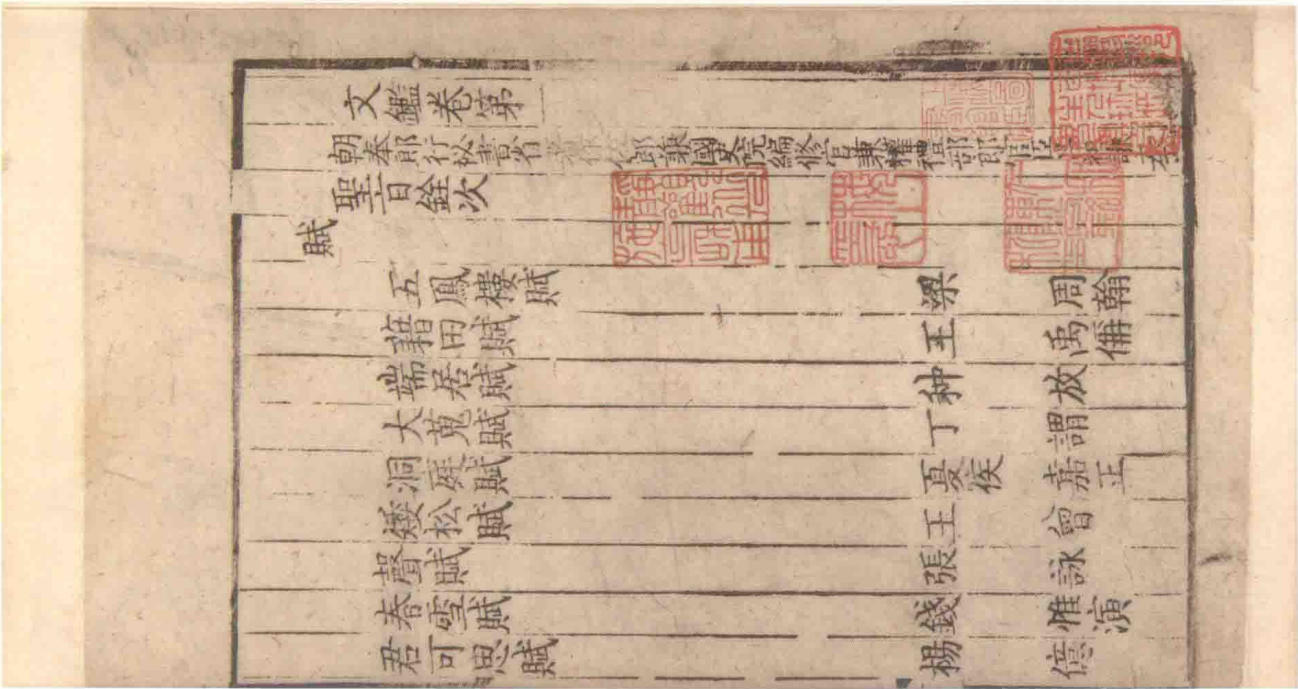 文鑑卷第
朝奉郎行祕書省郎兼國史院編修官兼權禮部郎官臣謙奉
聖旨銓次
賦
五鳳樓賦 梁周翰
藉田賦 王禹偁
端居賦 种放
大蒐賦 丁謂
洞庭賦 夏侯嘉正
矮松賦 王曾
聲賦 張詠
春雪賦 錢惟演
君可思賦 楊億